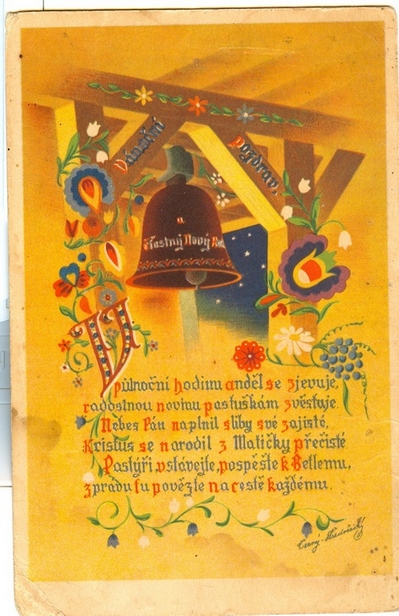 Vánoční
Pozdrav.
a
šťastný Nový Rok
V
půlnoční hodinu anděl se zjevuje,
radostnou novinu pastuškám zvěstuje.
Nebes Pán naplnil sliby své zajisté,
Kristus se narodil z Matičky přečisté
Pastýři, vstávejte, pospěšte k Betlemu,
zprávu tu povězte na cestě každému.